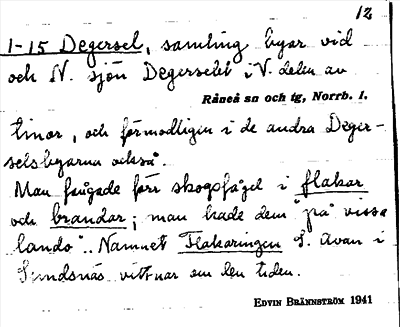 12
1-15 Degersel, samling byar vid
och N. sjön Degerselet i V. delen av
Råneå sn och tg, Norrb. l.
linor, och förmodligen i de andra Deger-
selsbyarna också.
Man fångade förr skogsfågel i flakar
och brandar; man hade dem "på vissa
lando".. Namnet Flakaringen S. Avan i
Sundsnäs vittnar om den tiden.
EDVIN BRÄNNSTRÖM 1941